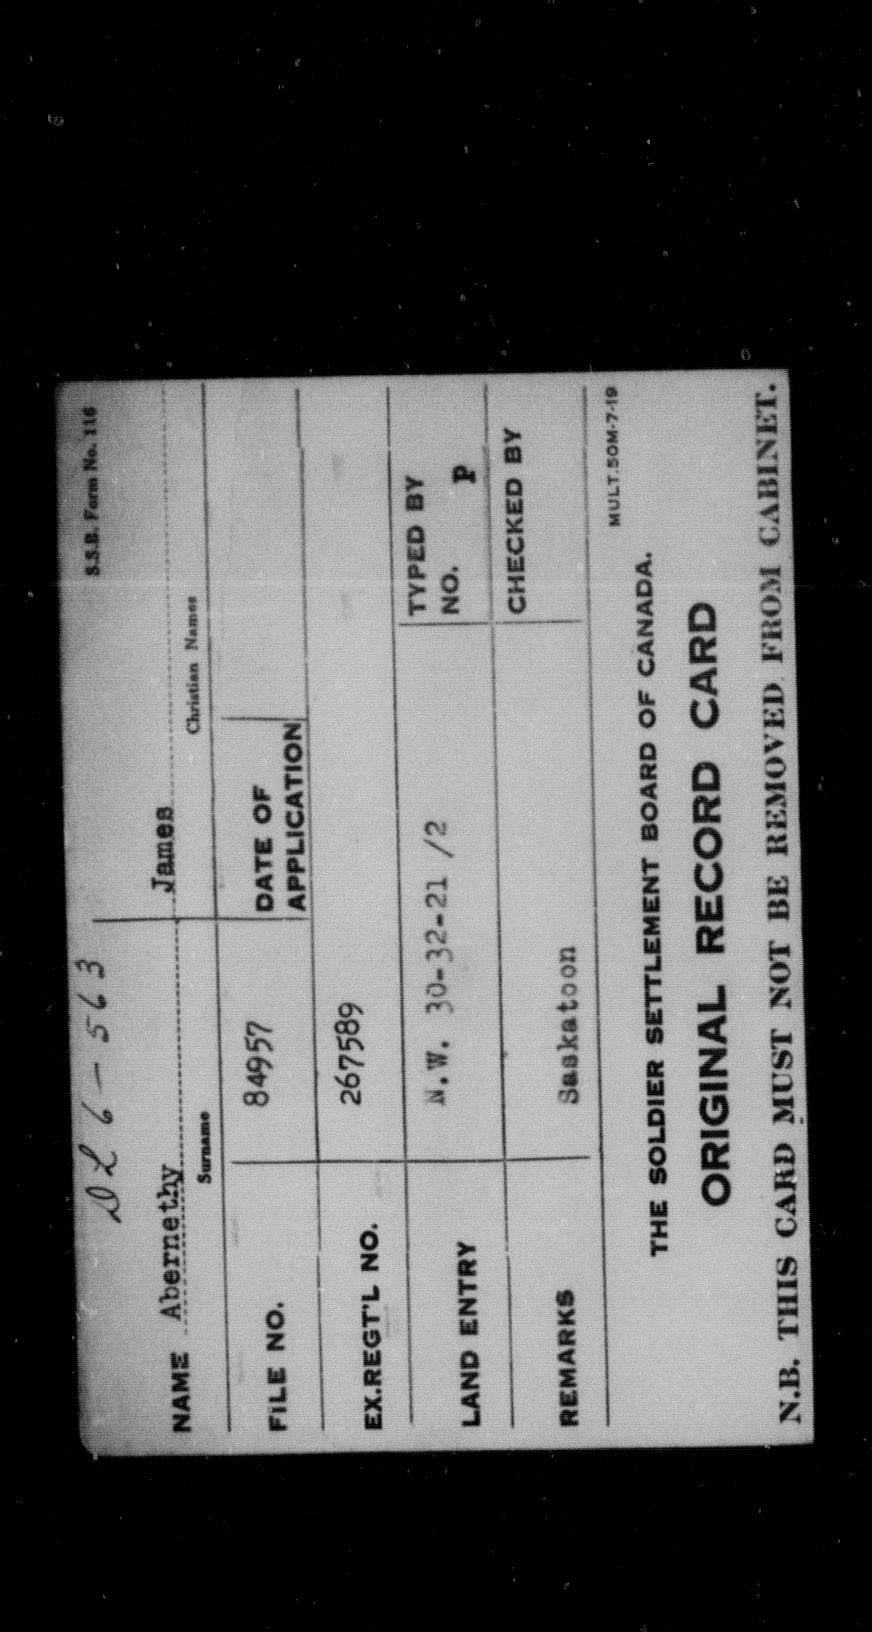 DL6-563
S.S.B. Form No. 116
NAME Abernethy James
Surname Christian Names
FILE NO. 84957 DATE OF APPLICATION
EX.REGT'L NO. 267589
LAND ENTRY N.W. 30-32-21 /2 TYPED BY NO. P
REMARKS Saskatoon CHECKED BY
MULT.50M-7-19
THE SOLDIER SETTLEMENT BOARD OF CANADA.
ORIGINAL RECORD CARD
N.B. THIS CARD MUST NOT BE REMOVED FROM CABINET.